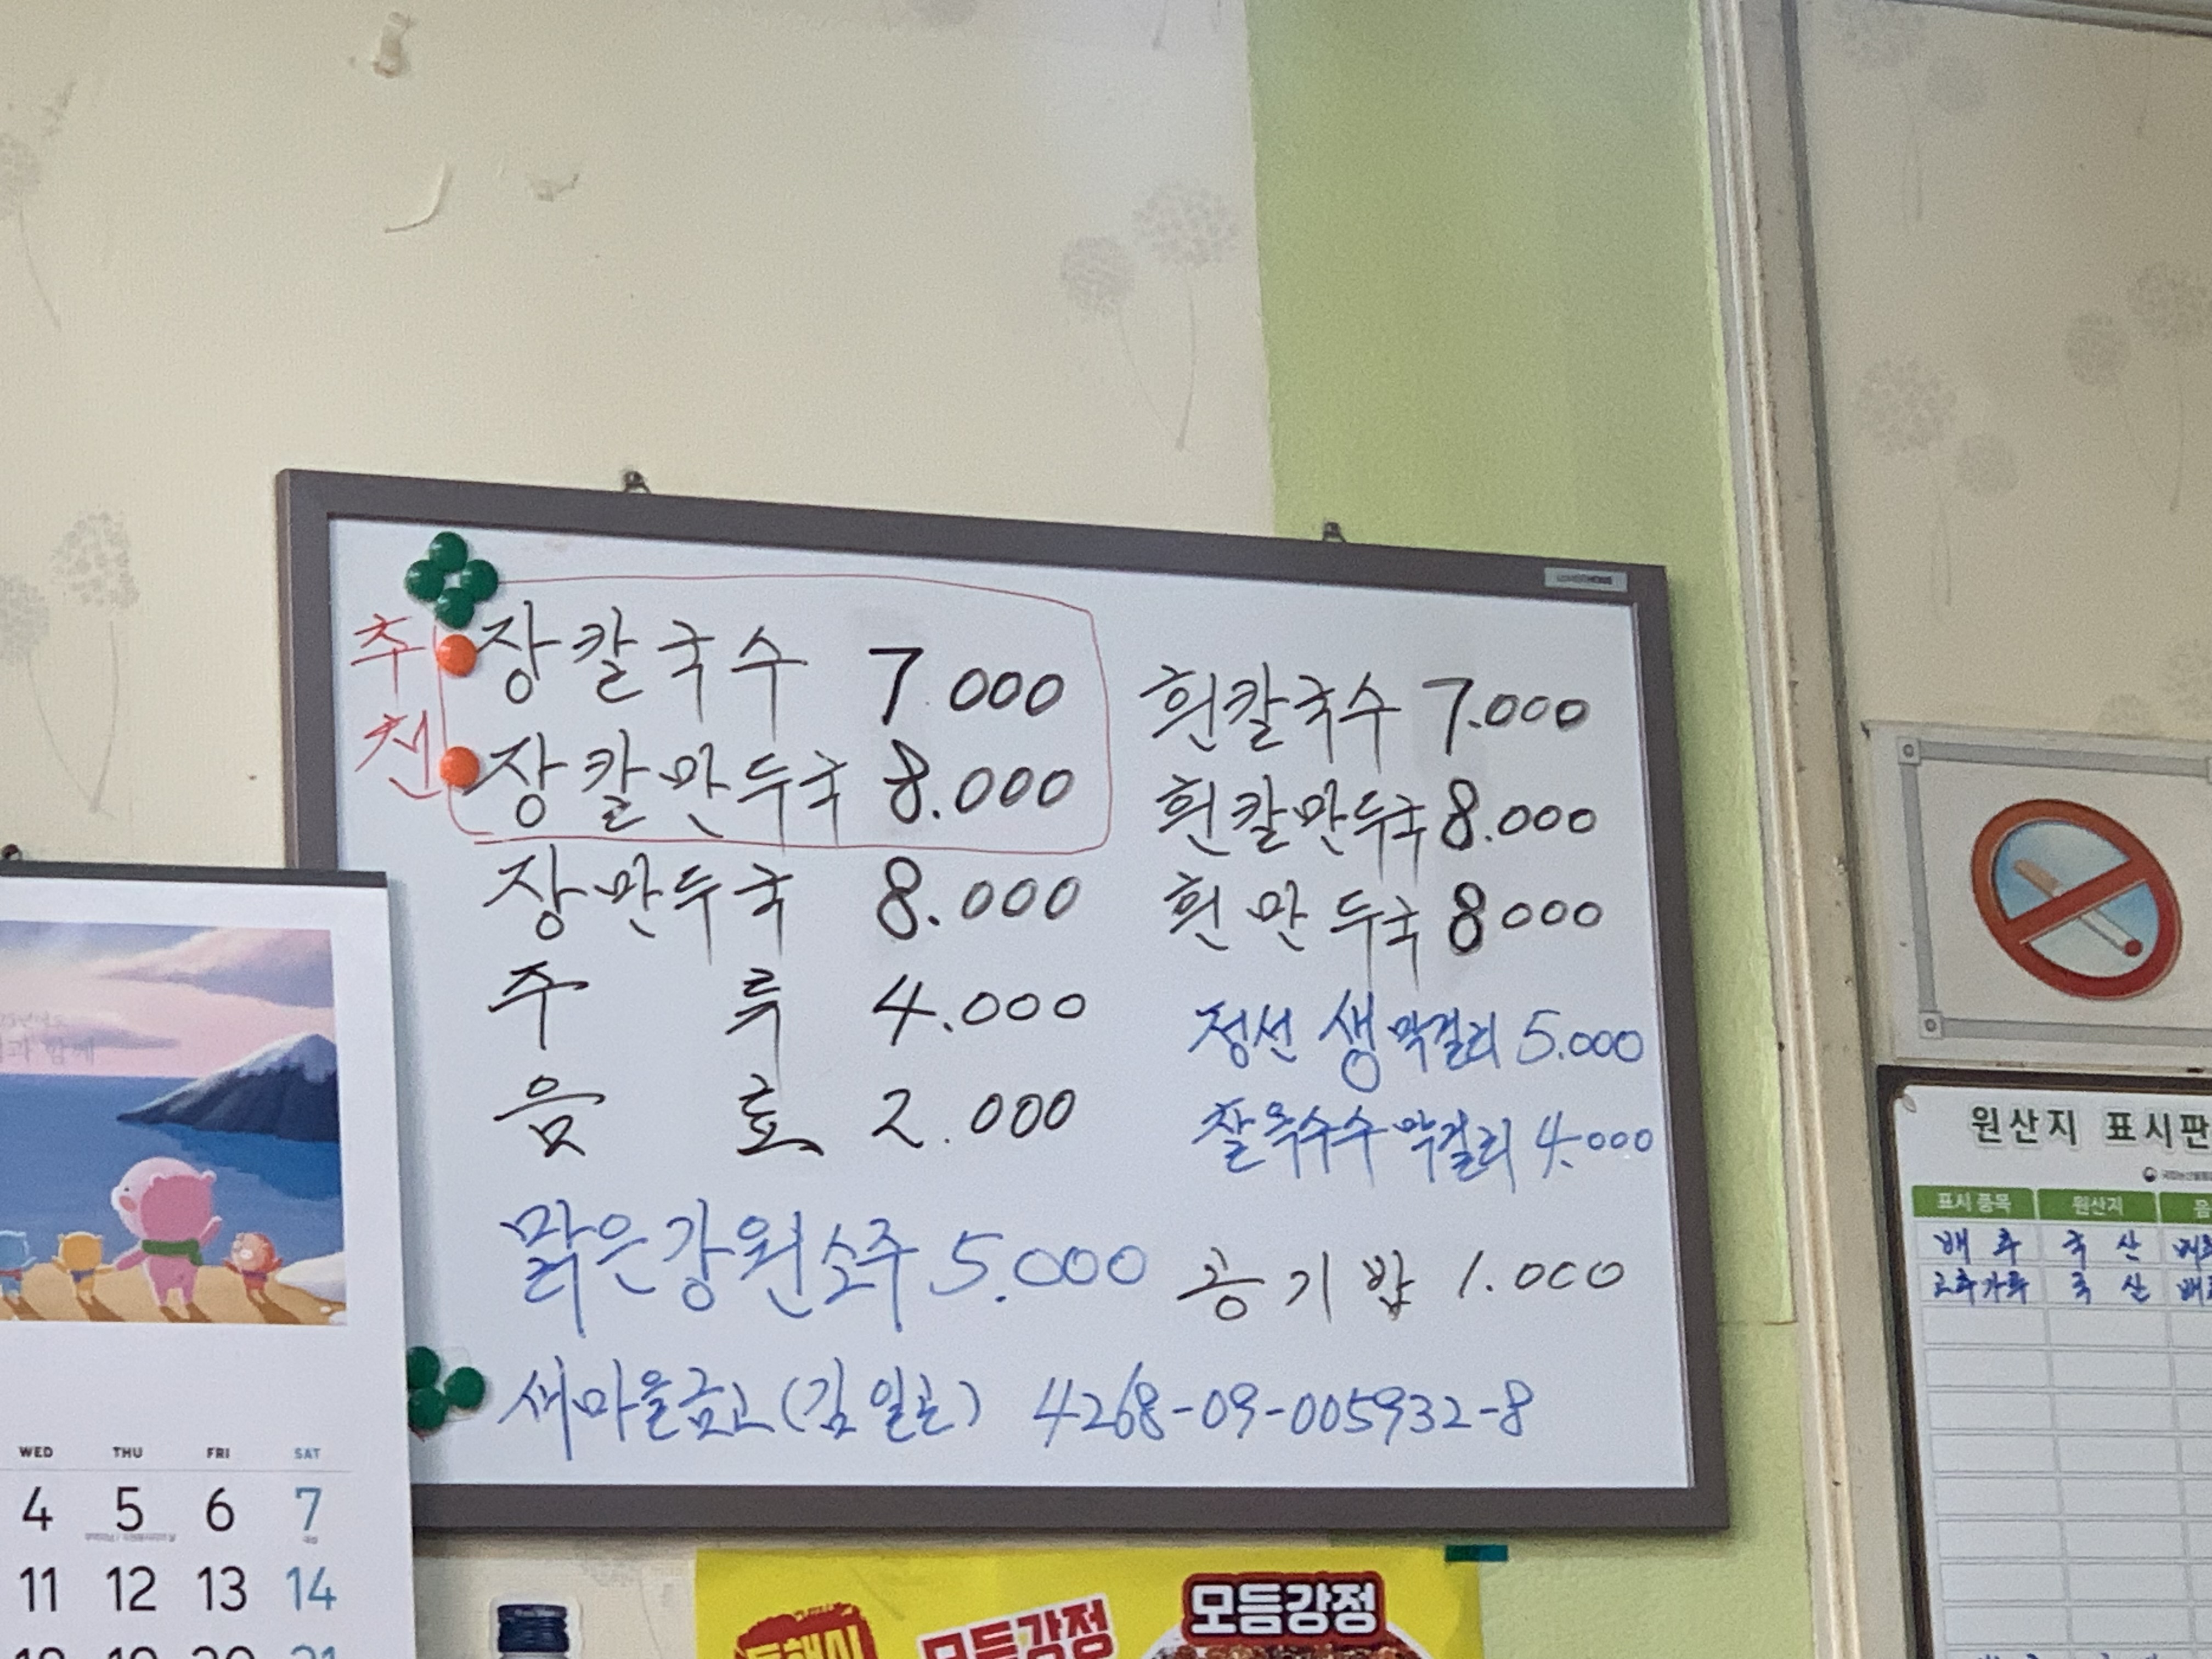 추천
장칼국수 7.000
장칼만두국 8.000
장만두국 8.000
주 류 4.000
음 료 2.000
맑은강원소주 5.000
흰칼국수 7.000
흰칼만두국 8.000
흰만두국 8000
정선 생막걸리 5.000
찰옥수수막걸리 4.000
공기밥 1.000
새마을금고(김일곤) 4268-09-005932-8
WED THU FRI SAT
4 5 6 7
11 12 13 14
모듬강정
모듬강정
원산지 표시판
표시 품목 원산지
배추 국산
고추가루 국산